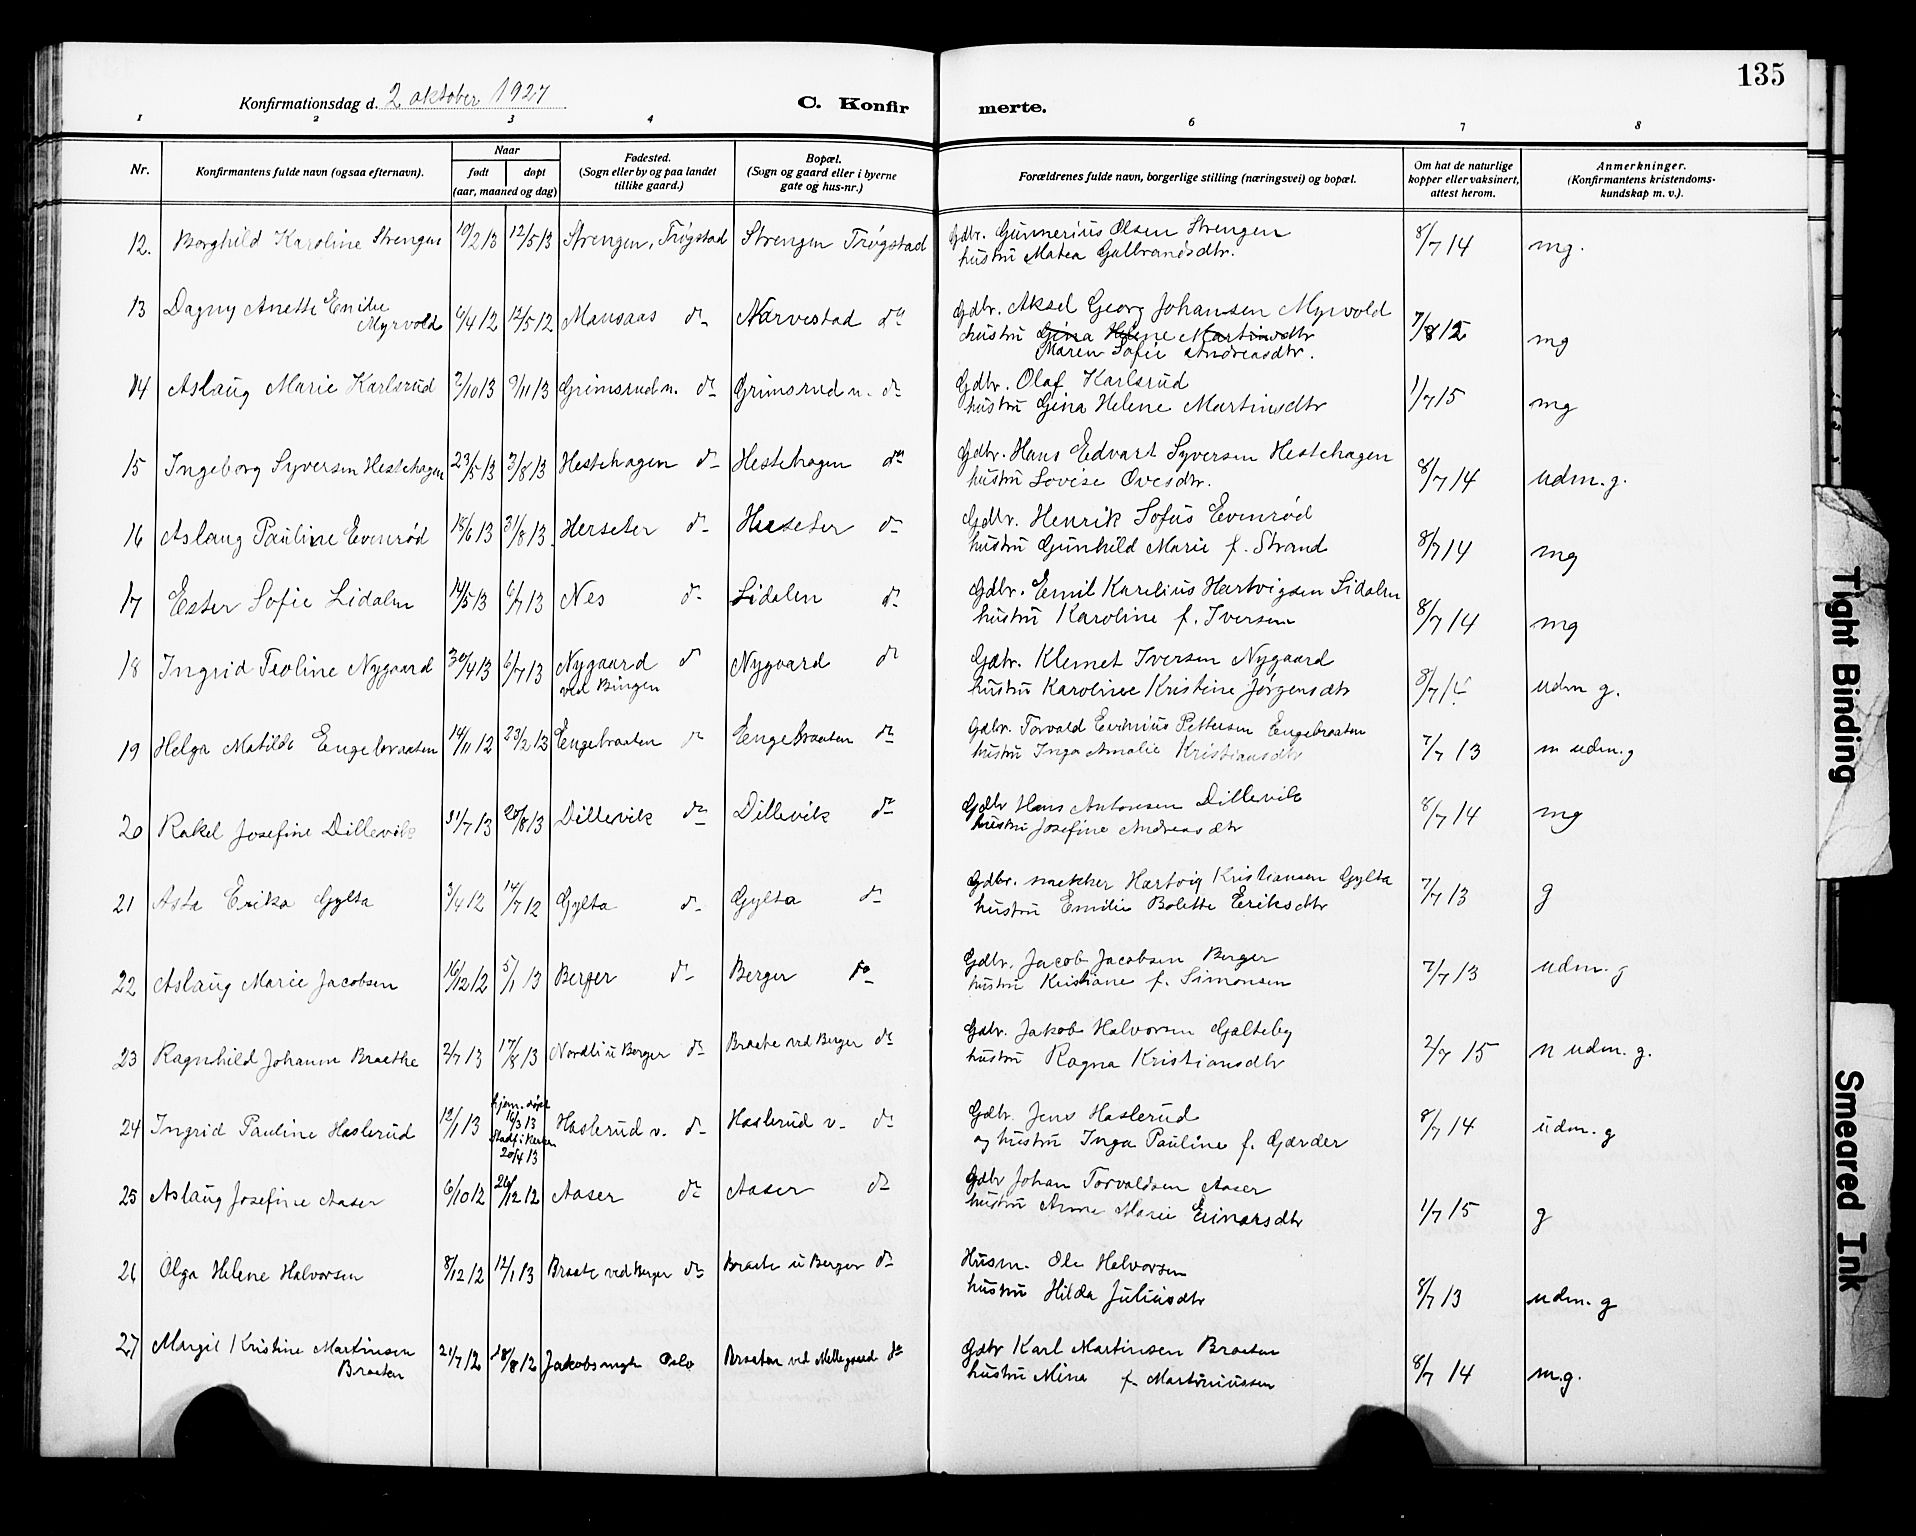 135
Konfirmationsdag d. 2 oktober 1927
C. Konfir merte.
1 2 3 4 6 7 8
Nr.
Konfirmantens fulde navn (ogsaa efternavn).
Naar
født døpt
(aar, maaned og dag)
Fødested.
(Sogn eller by og paa landet
tillike gaard.)
Bopæl.
(Sogn og gaard eller i byerne
gate og hus-nr.)
Forældrenes fulde navn, borgerlige stilling (næringsvei) og bopæl.
Om hat de naturlige
kopper eller vaksinert,
attest herom.
Anmerkninger.
(Konfirmantens kristendoms-
kundskap m. v.).
12. Borghild Karoline Strengen 19/2 13 12/5 13 Strengen, Trøgstad Strengen Trøgstad Gdbr. Gunnerius Olsen Strengen 8/7 14 mg.
hustru Matea Gulbrandsdtr.
13 Dagny Anette Emilie Myrvold 6/4 12 12/5 12 Mansaas do Narvestad do Gdbr. Aksel Georg Johansen Myrvold 7/8 12 mg
hustru Gina Helene Martinsdtr
Maren Sofie Andreasdtr.
14 Aslaug Marie Karlsrud 2/10 13 9/11 13 Grimsrud n. do Grimsrud n. do Gdbr. Olaf Karlsrud 1/7 15 mg
hustru Gina Helene Martinsdtr
15 Ingeborg Syversen Hestehagen 23/5 13 3/8 13 Hestehagen do Hestehagen do Gdbr. Hans Edvart Syversen Hestehagen 8/7 14 udm. g.
hustru Lovise Ovesdtr.
16 Aslaug Pauline Evenrød 18/6 13 31/8 13 Herseter do Herseter do Gdbr. Henrik Sofus Evenrød 8/7 14 mg
hustru Gunhild Marie f. Strand
17 Ester Sofie Lidalen 14/5 13 6/7 13 Nes do Lidalen do Gdbr. Emil Karelius Hartvigsen Lidalen 8/7 14 mg
hustru Karoline f. Iversen
18 Ingrid Teoline Nygaard 30/4 13 6/7 13 Nygaard do Nygaard do Gdbr. Klemet Iversen Nygaard 8/7 14 udm g.
ved Bingen hustru Karoline Kristine Jørgensdtr
19 Helga Matilde Engebraaten 14/11 12 23/2 13 Engebraaten do Engebraaten do Gdbr. Torvald Evenius Pettersen Engebraaten 7/7 13 m udm. g
hustru Inga Amalie Kristiansdtr
20 Rakel Josefine Dillevik 31/7 13 20/8 13 Dillevik do Dillevik do Gdbr Hans Antonsen Dillevik 8/7 14 mg
hustru Josefine Andreasdtr
21 Asta Erika Gylta 3/4 12 14/7 12 Gylta do Gylta do Gdbr. snekker Hartvig Kristiansen Gylta 7/7 13 g
hustru Emilie Bolette Eriksdtr
22 Aslaug Marie Jacobsen 16/12 12 5/1 13 Berger do Berger do Gdbr. Jacob Jacobsen Berger 7/7 13 udm. g
hustru Kristiane f. Simonsen
23 Ragnhild Johanne Braathe 2/7 13 17/8 13 Nordli u Berger do Braate ved Berger do Gdbr. Jakob Halvorsen Gælteby 2/7 15 n udm. g.
hustru Ragna Kristiansdtr
24 Ingrid Pauline Haslerud 12/1 13 hjem. døpt 16/3 13 Stadf. i Kirken 20/4 13 Haslerud v. do Haslerud v. do Gdbr. Jens Haslerud 8/7 14 udm. g
og hustru Inga Pauline f. Gærder
25 Aslaug Josefine Aaser 6/10 12 26/12 12 Aaser do Aaser do Gdbr Johan Torvaldsen Aaser 1/7 15 g
hustru Anne Marie Einarsdtr
26 Olga Helene Halvorsen 8/12 12 12/1 13 Braate ved Berger do Braate u Berger do Husm. Ole Halvorsen 8/7 13 udm. g
hustru Hilda Juliusdtr
27 Margit Kristine Martinsen Braaten 21/7 12 18/8 12 Jakobs mgh Oslo Braaten ved Mellegaard do Gdbr Karl Martinsen Braaten 8/7 14 m.g.
hustru Mina f. Martiniussen
Tight Binding
Smeared Ink